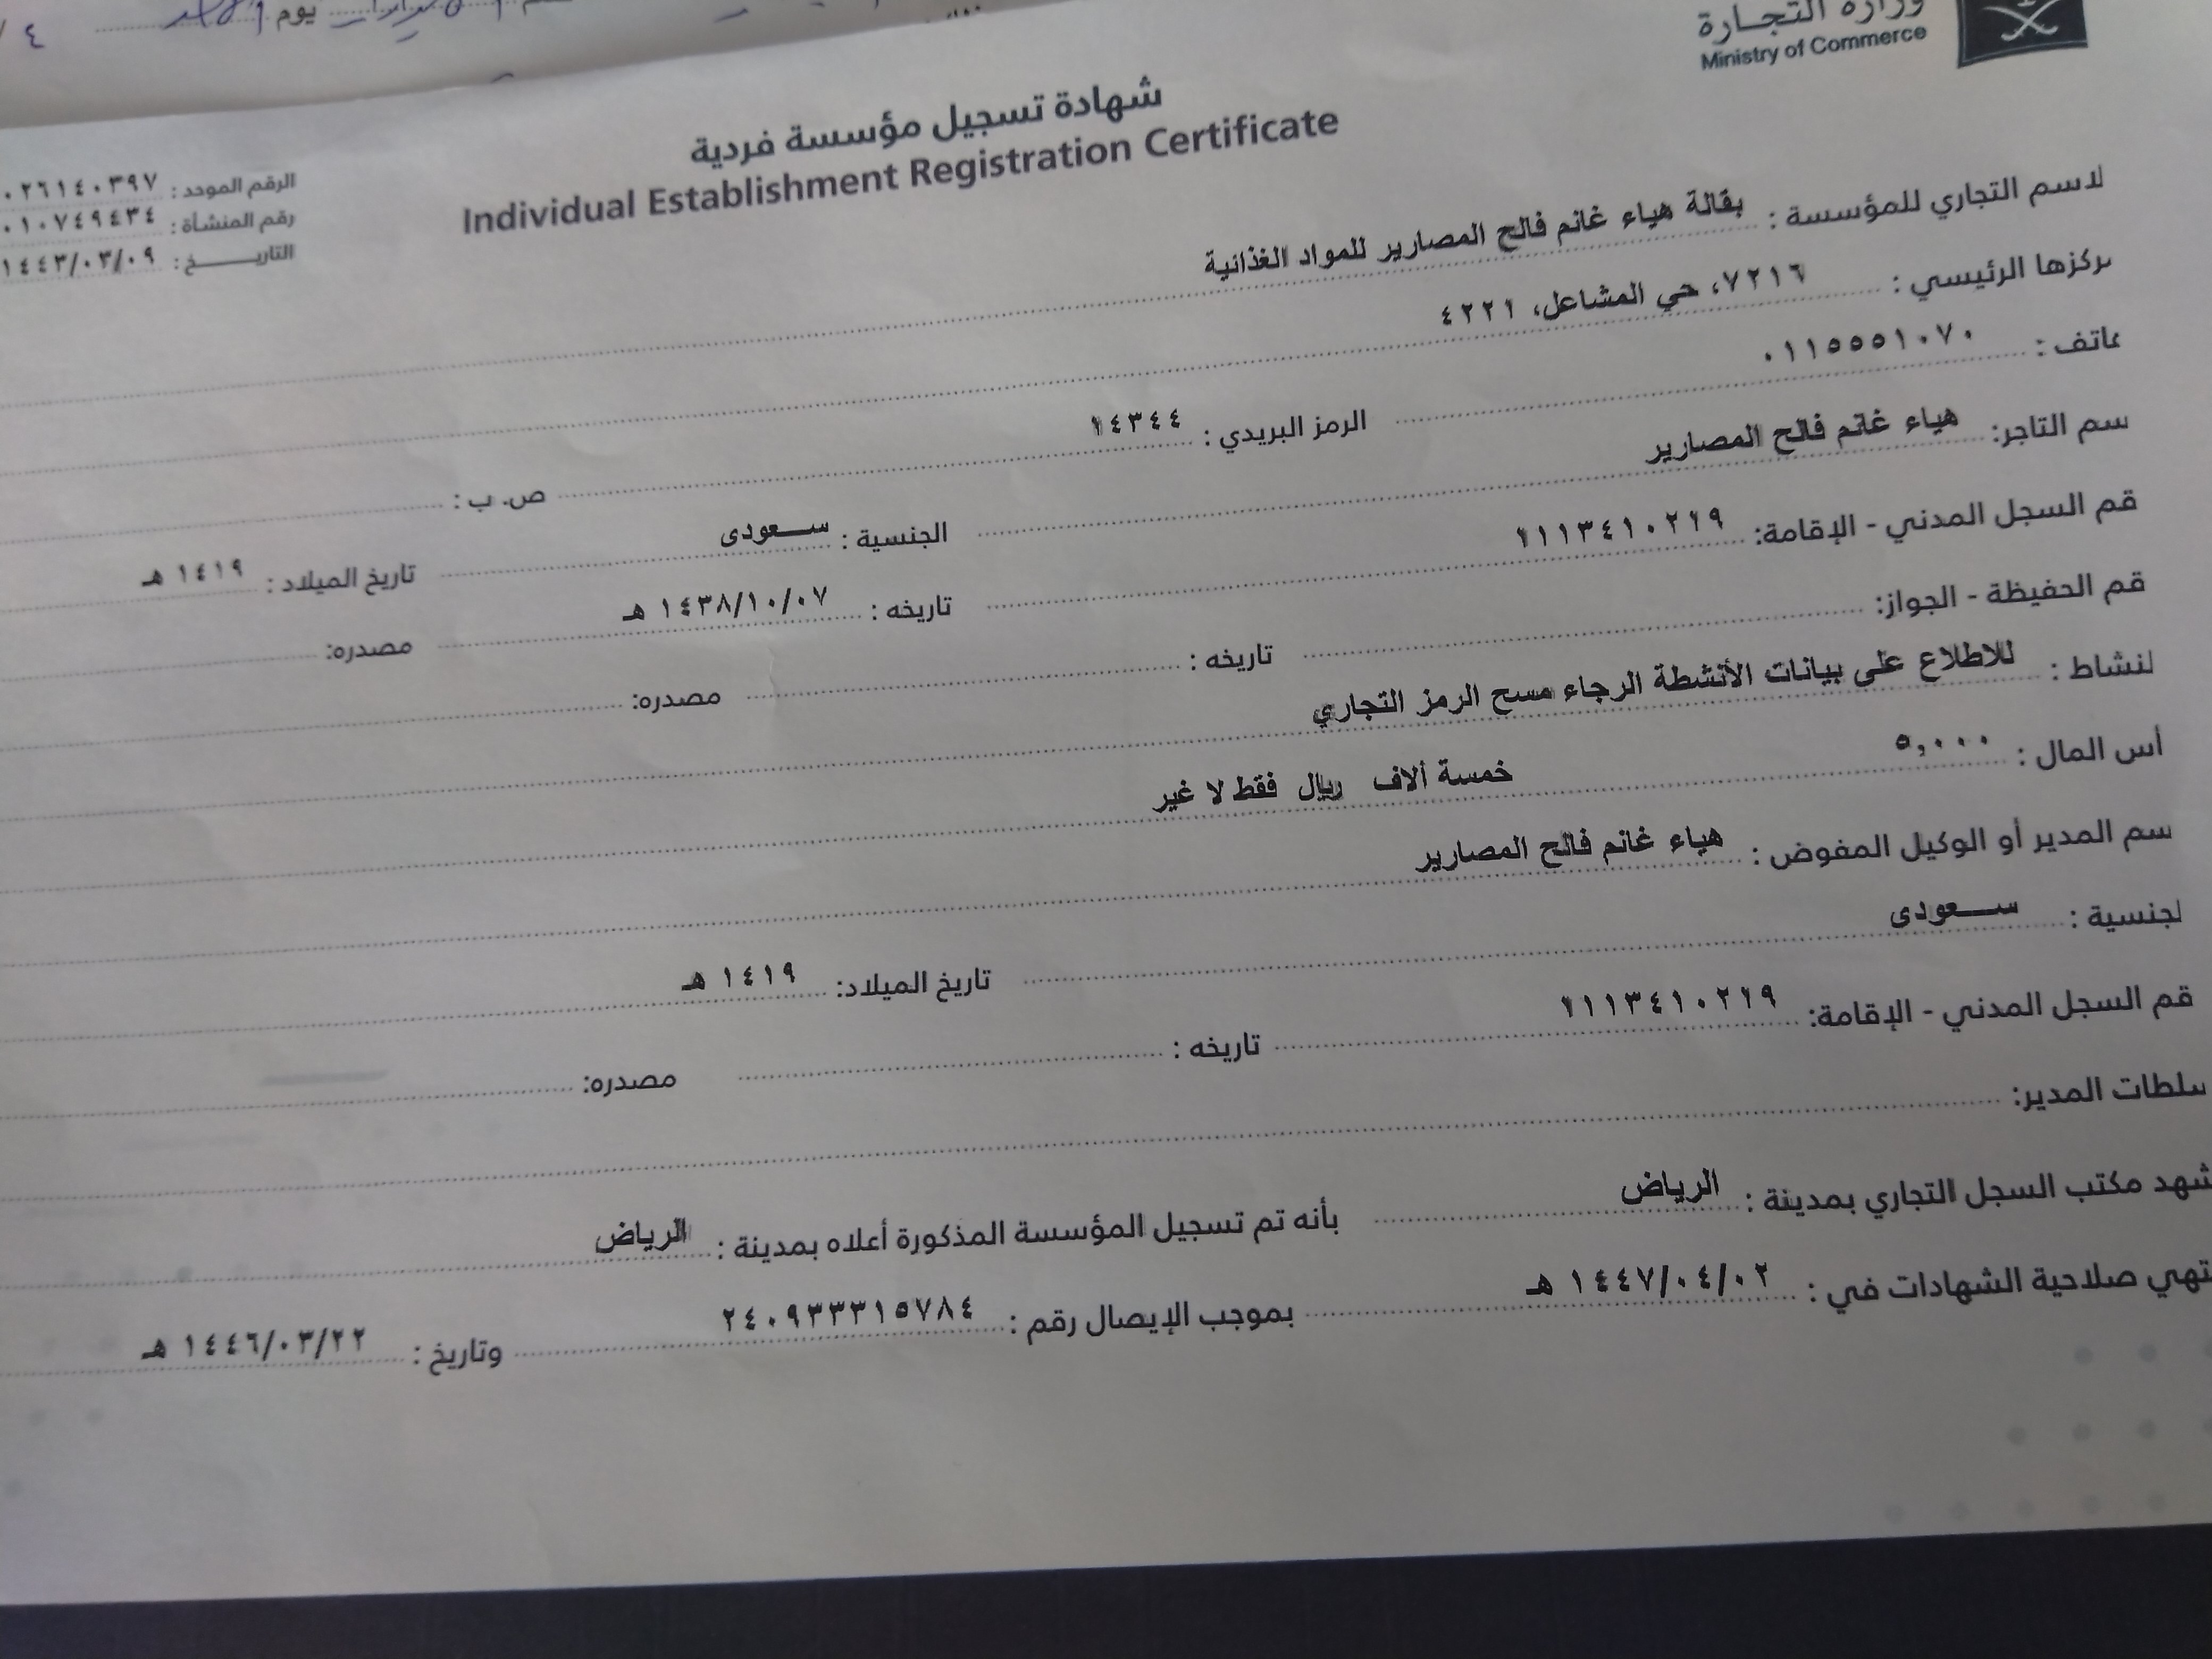 يوم
وزارة التجارة
Ministry of Commerce
شهادة تسجيل مؤسسة فردية
Individual Establishment Registration Certificate
الرقم الموحد : ٠٢٦١٤٠٣٩٧
رقم المنشأة : ٠١٠٧٤٩٤٣٤
التاريـــــخ : ١٤٤٣/٠٣/٠٩
لاسم التجاري للمؤسسة : بقالة هياء غانم فالح المصارير للمواد الغذائية
مركزها الرئيسي : ٧٢١٦، حي المشاعل، ٤٢٢١
هاتف : ٠١١٥٥٥١٠٧٠ الرمز البريدي : ١٤٣٤٤ ص. ب :
سم التاجر: هياء غانم فالح المصارير الجنسية : سـعودى تاريخ الميلاد : ١٤١٩ هـ
قم السجل المدني - الإقامة: ١١١٣٤١٠٢١٩ تاريخه : ١٤٣٨/١٠/٠٧ هـ مصدره:
قم الحفيظة - الجواز: تاريخه : مصدره:
لنشاط : للاطلاع على بيانات الأنشطة الرجاء مسح الرمز التجاري
أس المال : ٥,٠٠٠ خمسة آلاف ريال فقط لا غير
سم المدير أو الوكيل المفوض : هياء غانم فالح المصارير
لجنسية : سـعودى تاريخ الميلاد: ١٤١٩ هـ
قم السجل المدني - الإقامة: ١١١٣٤١٠٢١٩ تاريخه : مصدره:
سلطات المدير:
شهد مكتب السجل التجاري بمدينة : الرياض بأنه تم تسجيل المؤسسة المذكورة أعلاه بمدينة : الرياض
تهي صلاحية الشهادات في : ١٤٤٧/٠٤/٠٢ هـ بموجب الإيصال رقم : ٢٤٠٩٣٣٣١٥٧٨٤ وتاريخ : ١٤٤٦/٠٣/٢٢ هـ